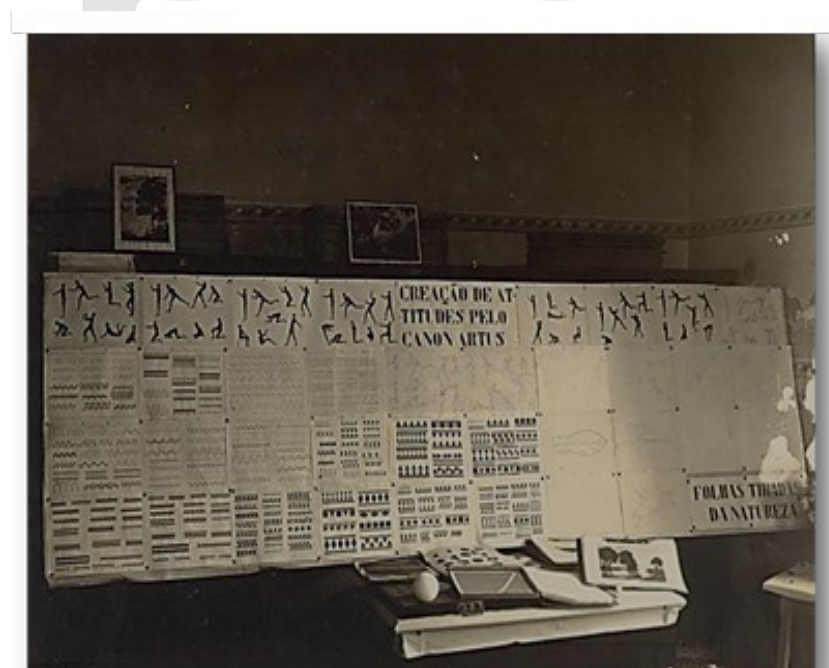 CREAÇÃO DE AT-
TITUDES PELO
CANON ARTUS
FOLHAS TIRADAS
DA NATUREZA